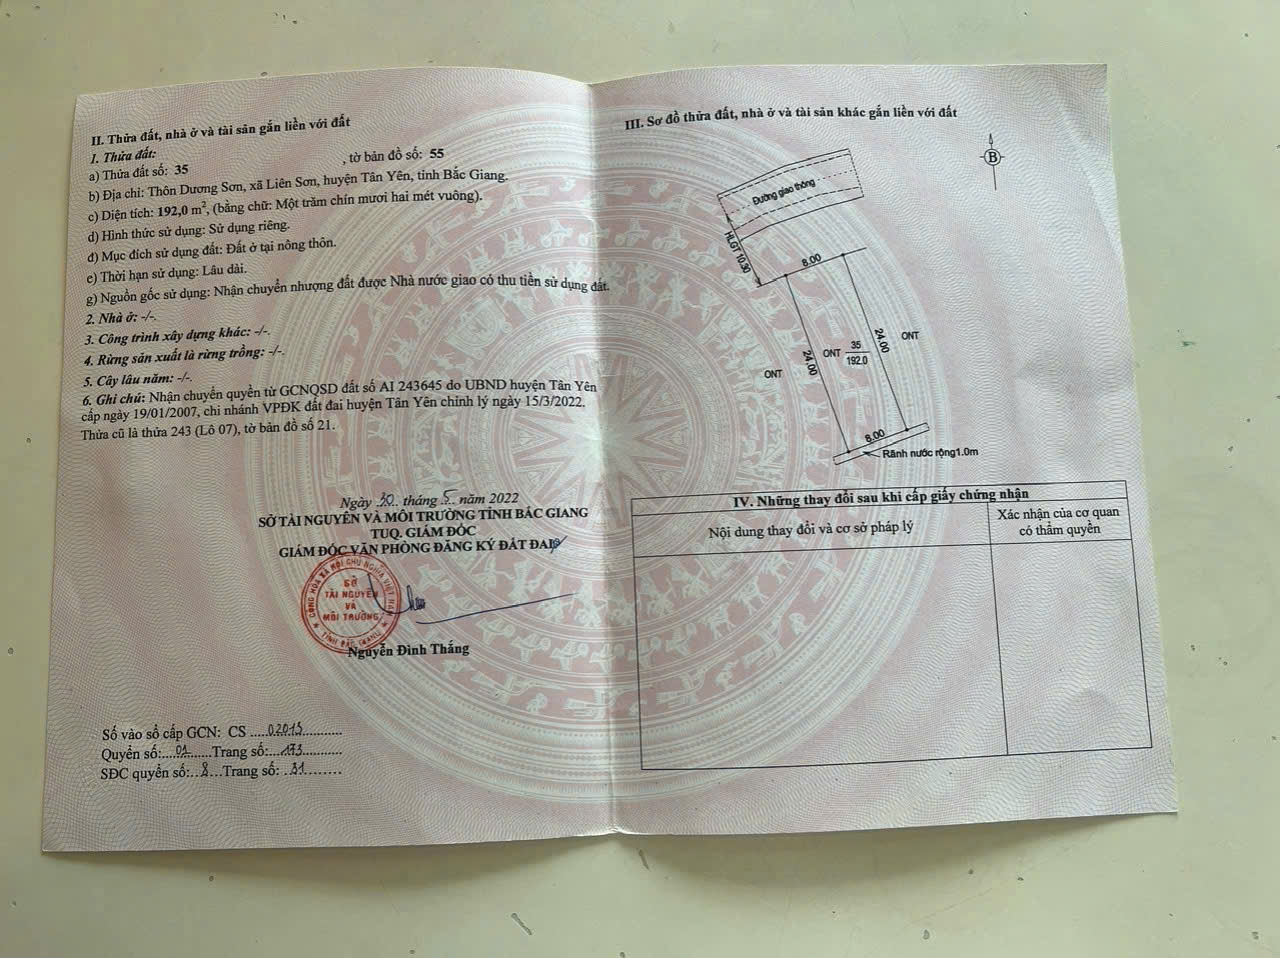 II. Thửa đất, nhà ở và tài sản gắn liền với đất
1. Thửa đất:
a) Thửa đất số: 35 , tờ bản đồ số: 55
b) Địa chỉ: Thôn Dương Sơn, xã Liên Sơn, huyện Tân Yên, tỉnh Bắc Giang.
c) Diện tích: 192,0 m², (bằng chữ: Một trăm chín mươi hai mét vuông).
d) Hình thức sử dụng: Sử dụng riêng.
đ) Mục đích sử dụng đất: Đất ở tại nông thôn.
e) Thời hạn sử dụng: Lâu dài.
g) Nguồn gốc sử dụng: Nhận chuyển nhượng đất được Nhà nước giao có thu tiền sử dụng đất.
2. Nhà ở: -/-.
3. Công trình xây dựng khác: -/-.
4. Rừng sản xuất là rừng trồng: -/-.
5. Cây lâu năm: -/-.
6. Ghi chú: Nhận chuyển quyền từ GCNQSD đất số AI 243645 do UBND huyện Tân Yên
cấp ngày 19/01/2007, chi nhánh VPĐK đất đai huyện Tân Yên chỉnh lý ngày 15/3/2022.
Thửa cũ là thửa 243 (Lô 07), tờ bản đồ số 21.
Ngày 30 tháng 5 năm 2022
SỞ TÀI NGUYÊN VÀ MÔI TRƯỜNG TỈNH BẮC GIANG
TUQ. GIÁM ĐỐC
GIÁM ĐỐC VĂN PHÒNG ĐĂNG KÝ ĐẤT ĐAI
CỘNG HÒA XÃ HỘI CHỦ NGHĨA VIỆT NAM
SỞ
TÀI NGUYÊN
VÀ
MÔI TRƯỜNG
TỈNH BẮC GIANG
Nguyễn Đình Thắng
Số vào sổ cấp GCN: CS ....02013..........
Quyển số:...01......Trang số:...173..........
SĐC quyển số:..8...Trang số: .31........
III. Sơ đồ thửa đất, nhà ở và tài sản khác gắn liền với đất
B
Đường giao thông
HLGT 10.30
8.00
24.00
24.00
ONT
ONT
35
192.0
ONT
8.00
Rãnh nước rộng1.0m
IV. Những thay đổi sau khi cấp giấy chứng nhận
Nội dung thay đổi và cơ sở pháp lý
Xác nhận của cơ quan
có thẩm quyền